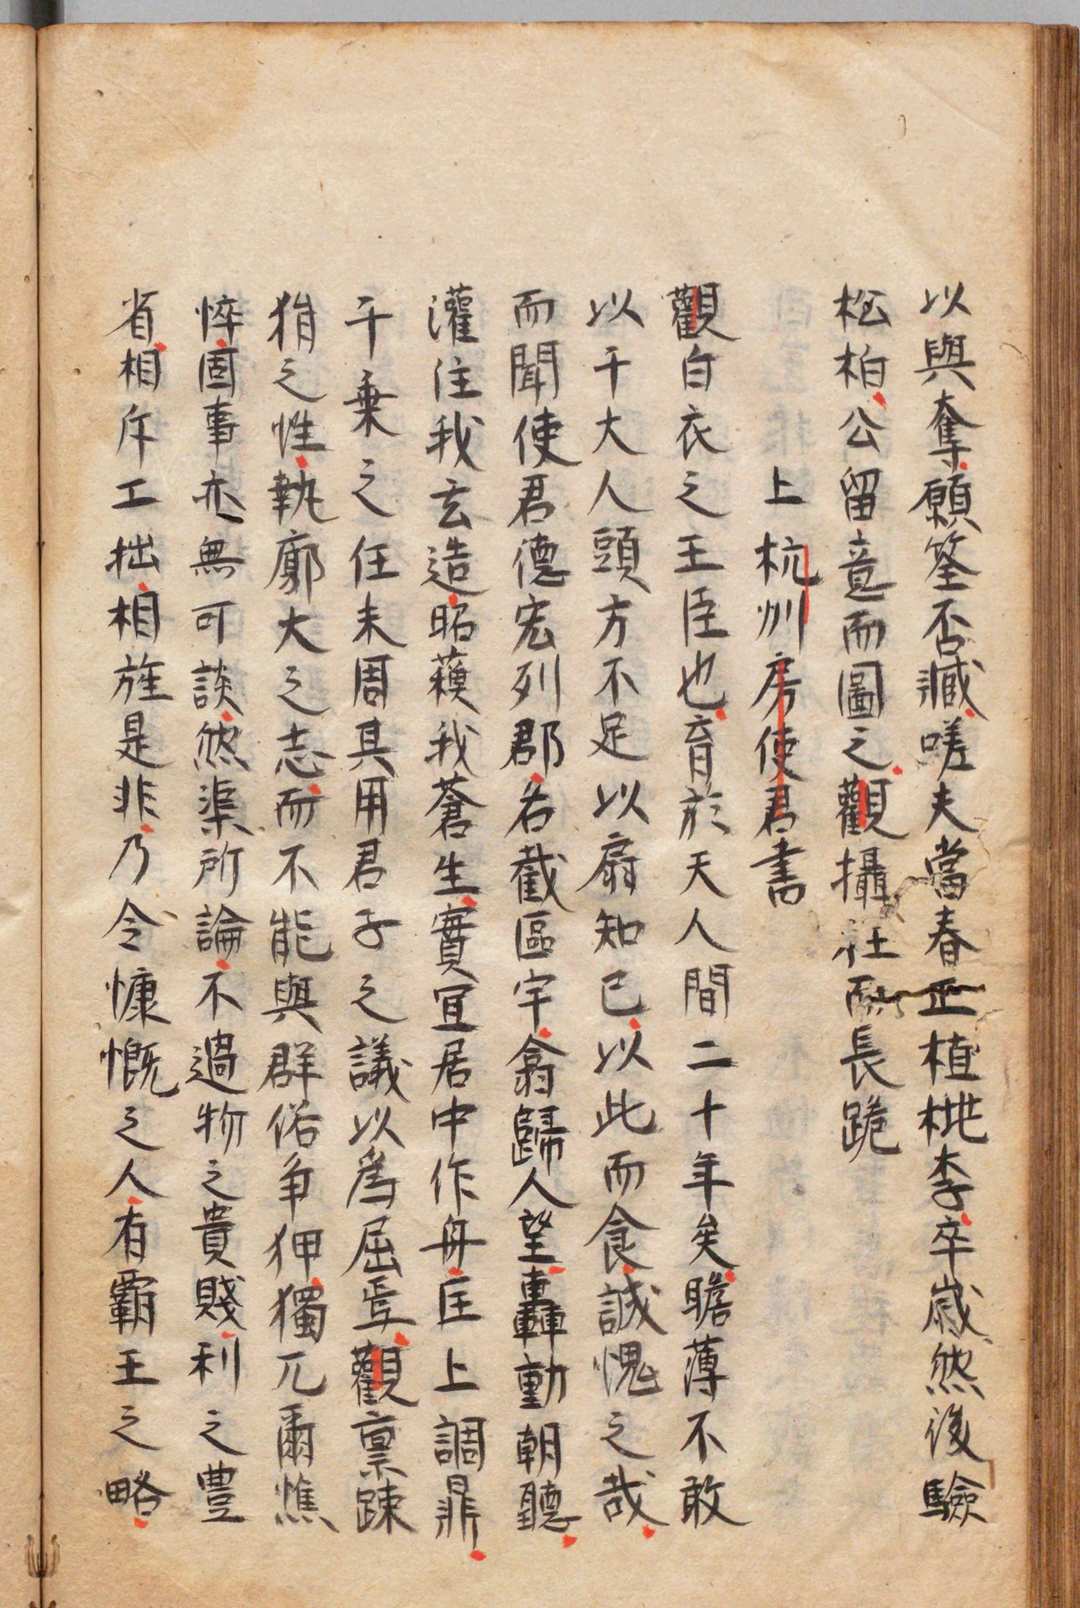 以與奪願筌否臧嗟夫當春正植桃李卒歲然後驗
松柏公留意而圖之觀攝社而長跪
上杭州房使君書
觀白衣之王臣也育於天人間二十年矣瞻薄不敢
以干大人頭方不足以扇知己以此而食誠愧之哉
而聞使君德宏列郡名截區宇翕歸人望轟動朝聽
灌注我玄造昭蘓我蒼生實宜居中作舟匡上調鼎
千乗之任未周其用君子之議以為屈焉觀禀踈
狷之性執廓大之志而不能與群俗争狎獨兀爾憔
悴固事亦無可談然渠所論不過物之貴賤利之豊
省相斥工拙相旌是非乃令慷慨之人有霸王之略